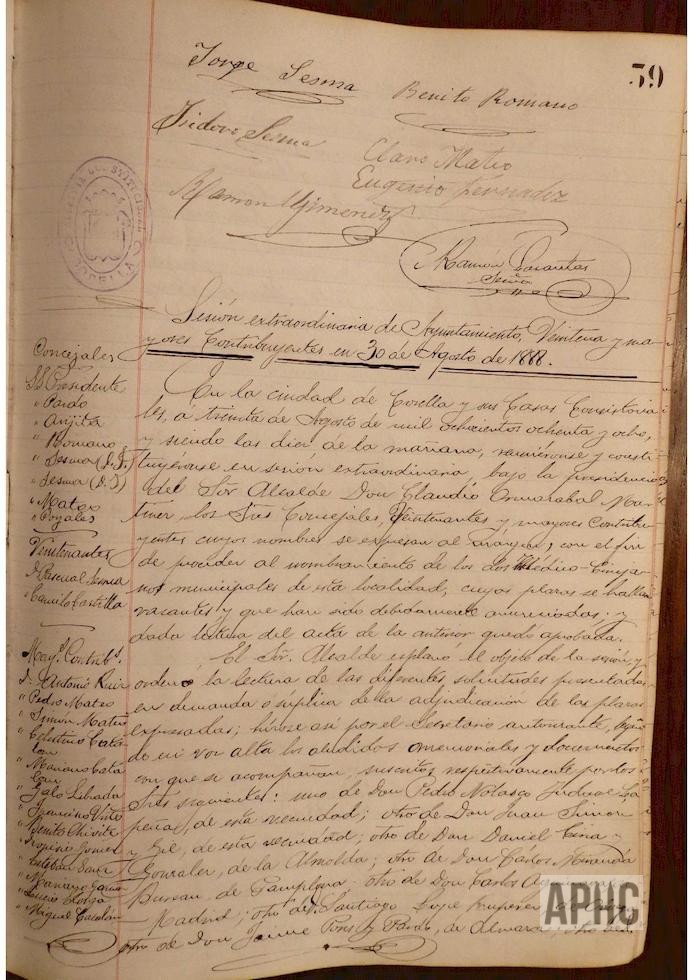 59
Jorge Sesma
Benito Romano
Isidoro Sesma
Claro Mateo
Eugenio Fernadez
Ramon Gimenez
Ramon
CORELLA
Sesión extraordinaria de Ayuntamiento, Veintena y ma-
yores Contribuyentes en 30 de Agosto de 1888.
Concejales
SS. Presidente
" Pardo
" Argita
" Romano
" Sesma (D. J.)
" Sesma (D. I)
" Mateo
" Poyales
Veintenantes
D. Pascual Sesma
" Camilo Castilla
May.s Contrib.s
D. Antonio Ruiz
" Pedro Mateo
" Simon Mateo
" Celestino Cata-
lan
" Mariano Cata
lan
" Galo Librada
" Francisco Virto
" Benito Chivite
" Gomez
" Esteban Sanz
"
"
" Miguel Catalan
En la ciudad de Corella y sus Casas Consistoria-
les, a treinta de Agosto de mil ochocientos ochenta y ocho,
y siendo las diez de la mañana, reuniéronse y consti-
tuyéronse en sesión extraordinaria, bajo la presidencia
del Sór Alcalde Don Claudio Mar-
tinez, los Sres Concejales, Veintenantes y mayores Contribu-
yentes cuyos nombres se expresan al margen, con el fin
de proceder al nombramiento de los dos Médico-Ciruja-
nos municipales de esta localidad, cuyas plazas se hallan
vacantes y que han sido debidamente anunciadas; y
dada lectura del acta de la anterior quedó aprobada.
El Sór. Alcalde explanó el objeto de la sesión, y
ordenó la lectura de las diferentes solicitudes presentadas
en demanda o suplica de la adjudicación de las plazas
expresadas; hízose así por el Secretario autorizante,
de viva voz alta los aludidos memoriales y documentos
con que se acompañan, suscritos respectivamente por los
Sres siguientes: uno de Don Pedro Nolasco
peña, de esta vecindad; otro de Don Juan Simon
y Gil, de esta vecindad; otro de Don Daniel Cena y
Gonzalez, de la Almolda; otro de Don Cárlos Miranda
Bureau, de Pamplona; otro de Don Carlos
Madrid; otro de D. Santiago
otro de Don Jaime Pons y Pardo, de
APHC